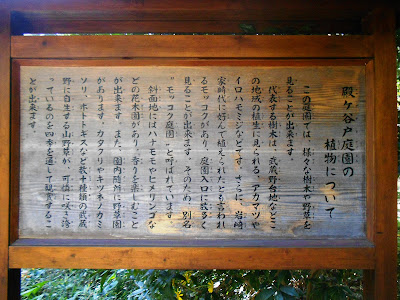 殿ヶ谷戸庭園の
植物について
この庭園では、様々な樹木や野草を
見ることが出来ます。
代表する樹木は、武蔵野台地などこ
の地域の植生に見られる、アカマツや
イロハモミジなどです。さらに、岩崎
家時代に好んで植えられたとも言われ
るモッコクがあり、庭園入口に数多く
見ることが出来ます。そのため、別名
“モッコク庭園”と呼ばれています。
斜面地にはハナモモやヒメリンゴな
どの花木園があり、香りを楽しむこと
が出来ます。また、園内随所に野草園
があります。カタクリやキツネノカミ
ソリ、ホトトギスなど数十種類の武蔵
野に自生する山野草が、可憐に咲き誇
っているのを四季を通して観賞するこ
とが出来ます。